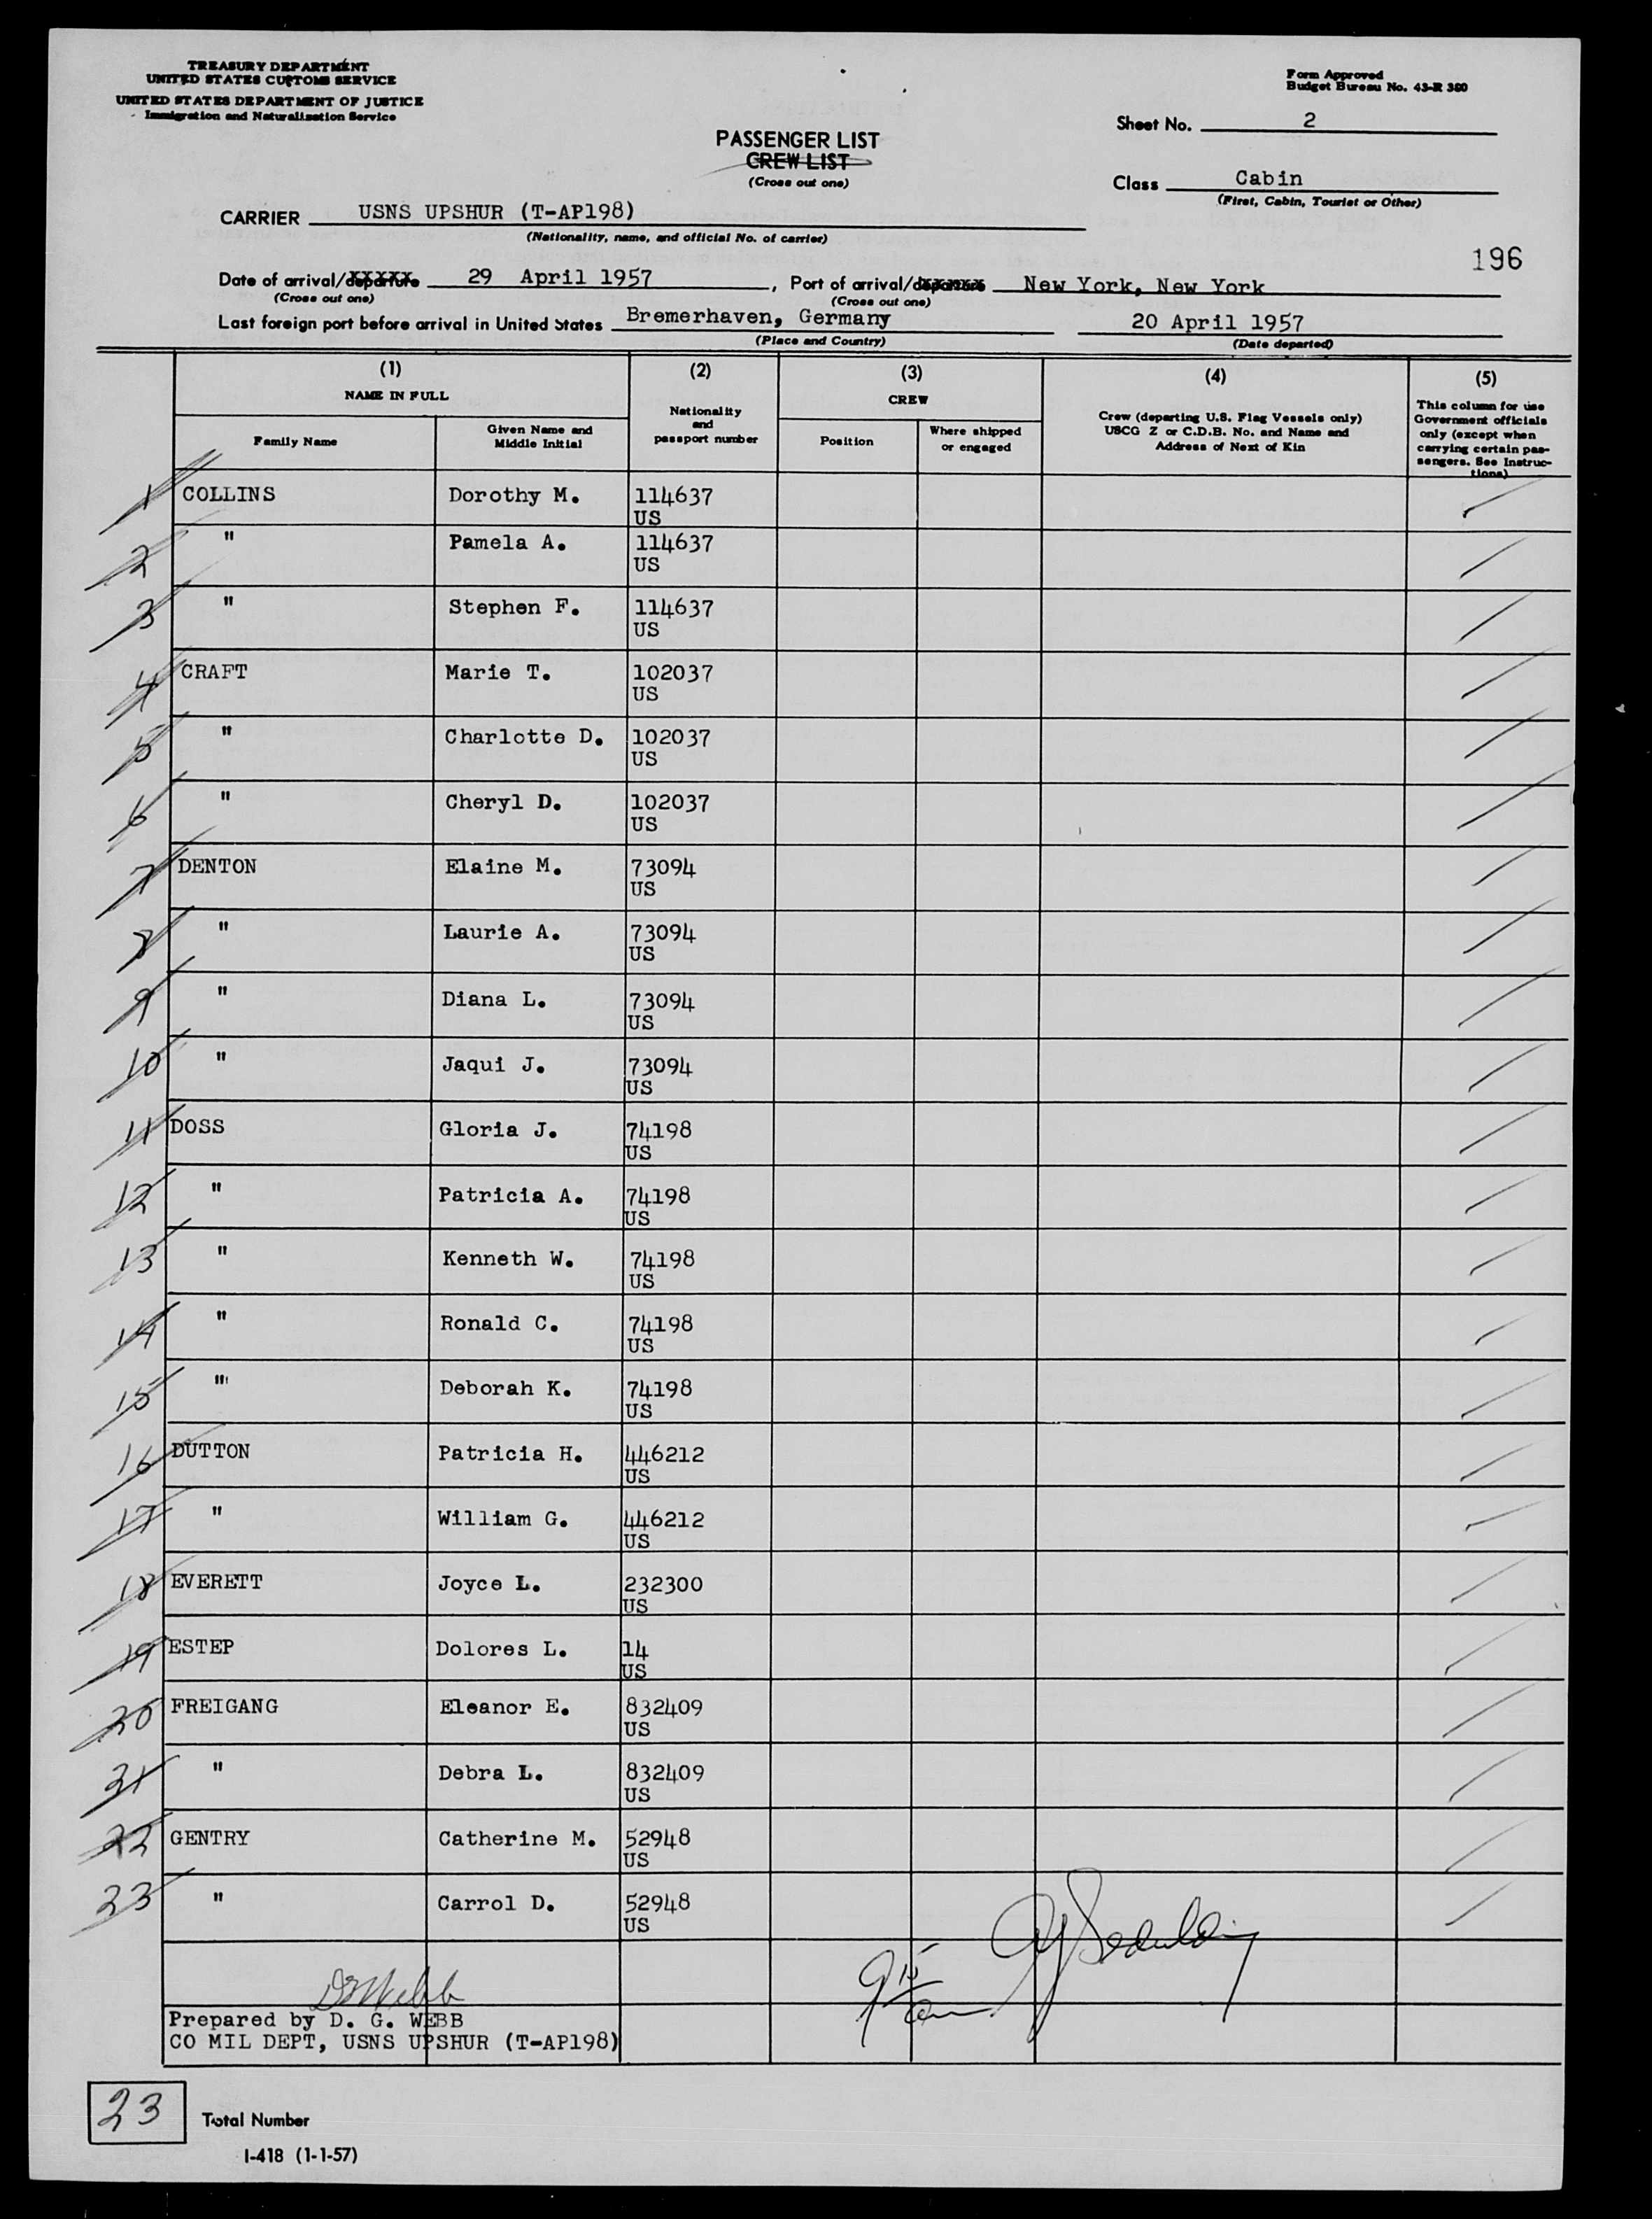 TREASURY DEPARTMENT
UNITED STATES CUSTOMS SERVICE
UNITED STATES DEPARTMENT OF JUSTICE
Immigration and Naturalization Service
Form Approved
Budget Bureau No. 43-R 380
Sheet No. 2
PASSENGER LIST
CREW LIST
(Cross out one)
Class Cabin
(First, Cabin, Tourist or Other)
CARRIER USNS UPSHUR (T-AP198)
(Nationality, name, and official No. of carrier)
196
Date of arrival/departure 29 April 1957, Port of arrival/departure New York, New York
(Cross out one) (Cross out one)
Last foreign port before arrival in United States Bremerhaven, Germany 20 April 1957
(Place and Country) (Date departed)
(1) (2) (3) (4) (5)
NAME IN FULL
Family Name
Given Name and
Middle Initial
Nationality
and
passport number
CREW
Position
Where shipped
or engaged
Crew (departing U.S. Flag Vessels only)
USCG Z or C.D.B. No. and Name and
Address of Next of Kin
This column for use
Government officials
only (except when
carrying certain pas-
sengers. See Instruc-
tions)
1 COLLINS Dorothy M. 114637
US
2 " Pamela A. 114637
US
3 " Stephen F. 114637
US
4 CRAFT Marie T. 102037
US
5 " Charlotte D. 102037
US
6 " Cheryl D. 102037
US
7 DENTON Elaine M. 73094
US
8 " Laurie A. 73094
US
9 " Diana L. 73094
US
10 " Jaqui J. 73094
US
11 DOSS Gloria J. 74198
US
12 " Patricia A. 74198
US
13 " Kenneth W. 74198
US
14 " Ronald C. 74198
US
15 " Deborah K. 74198
US
16 DUTTON Patricia H. 446212
US
17 " William G. 446212
US
18 EVERETT Joyce L. 232300
US
19 ESTEP Dolores L. 14
US
20 FREIGANG Eleanor E. 832409
US
21 " Debra L. 832409
US
22 GENTRY Catherine M. 52948
US
23 " Carrol D. 52948
US
DGWebb
9 15
am
Prepared by D. G. WEBB
CO MIL DEPT, USNS UPSHUR (T-AP198)
23 Total Number
I-418 (1-1-57)